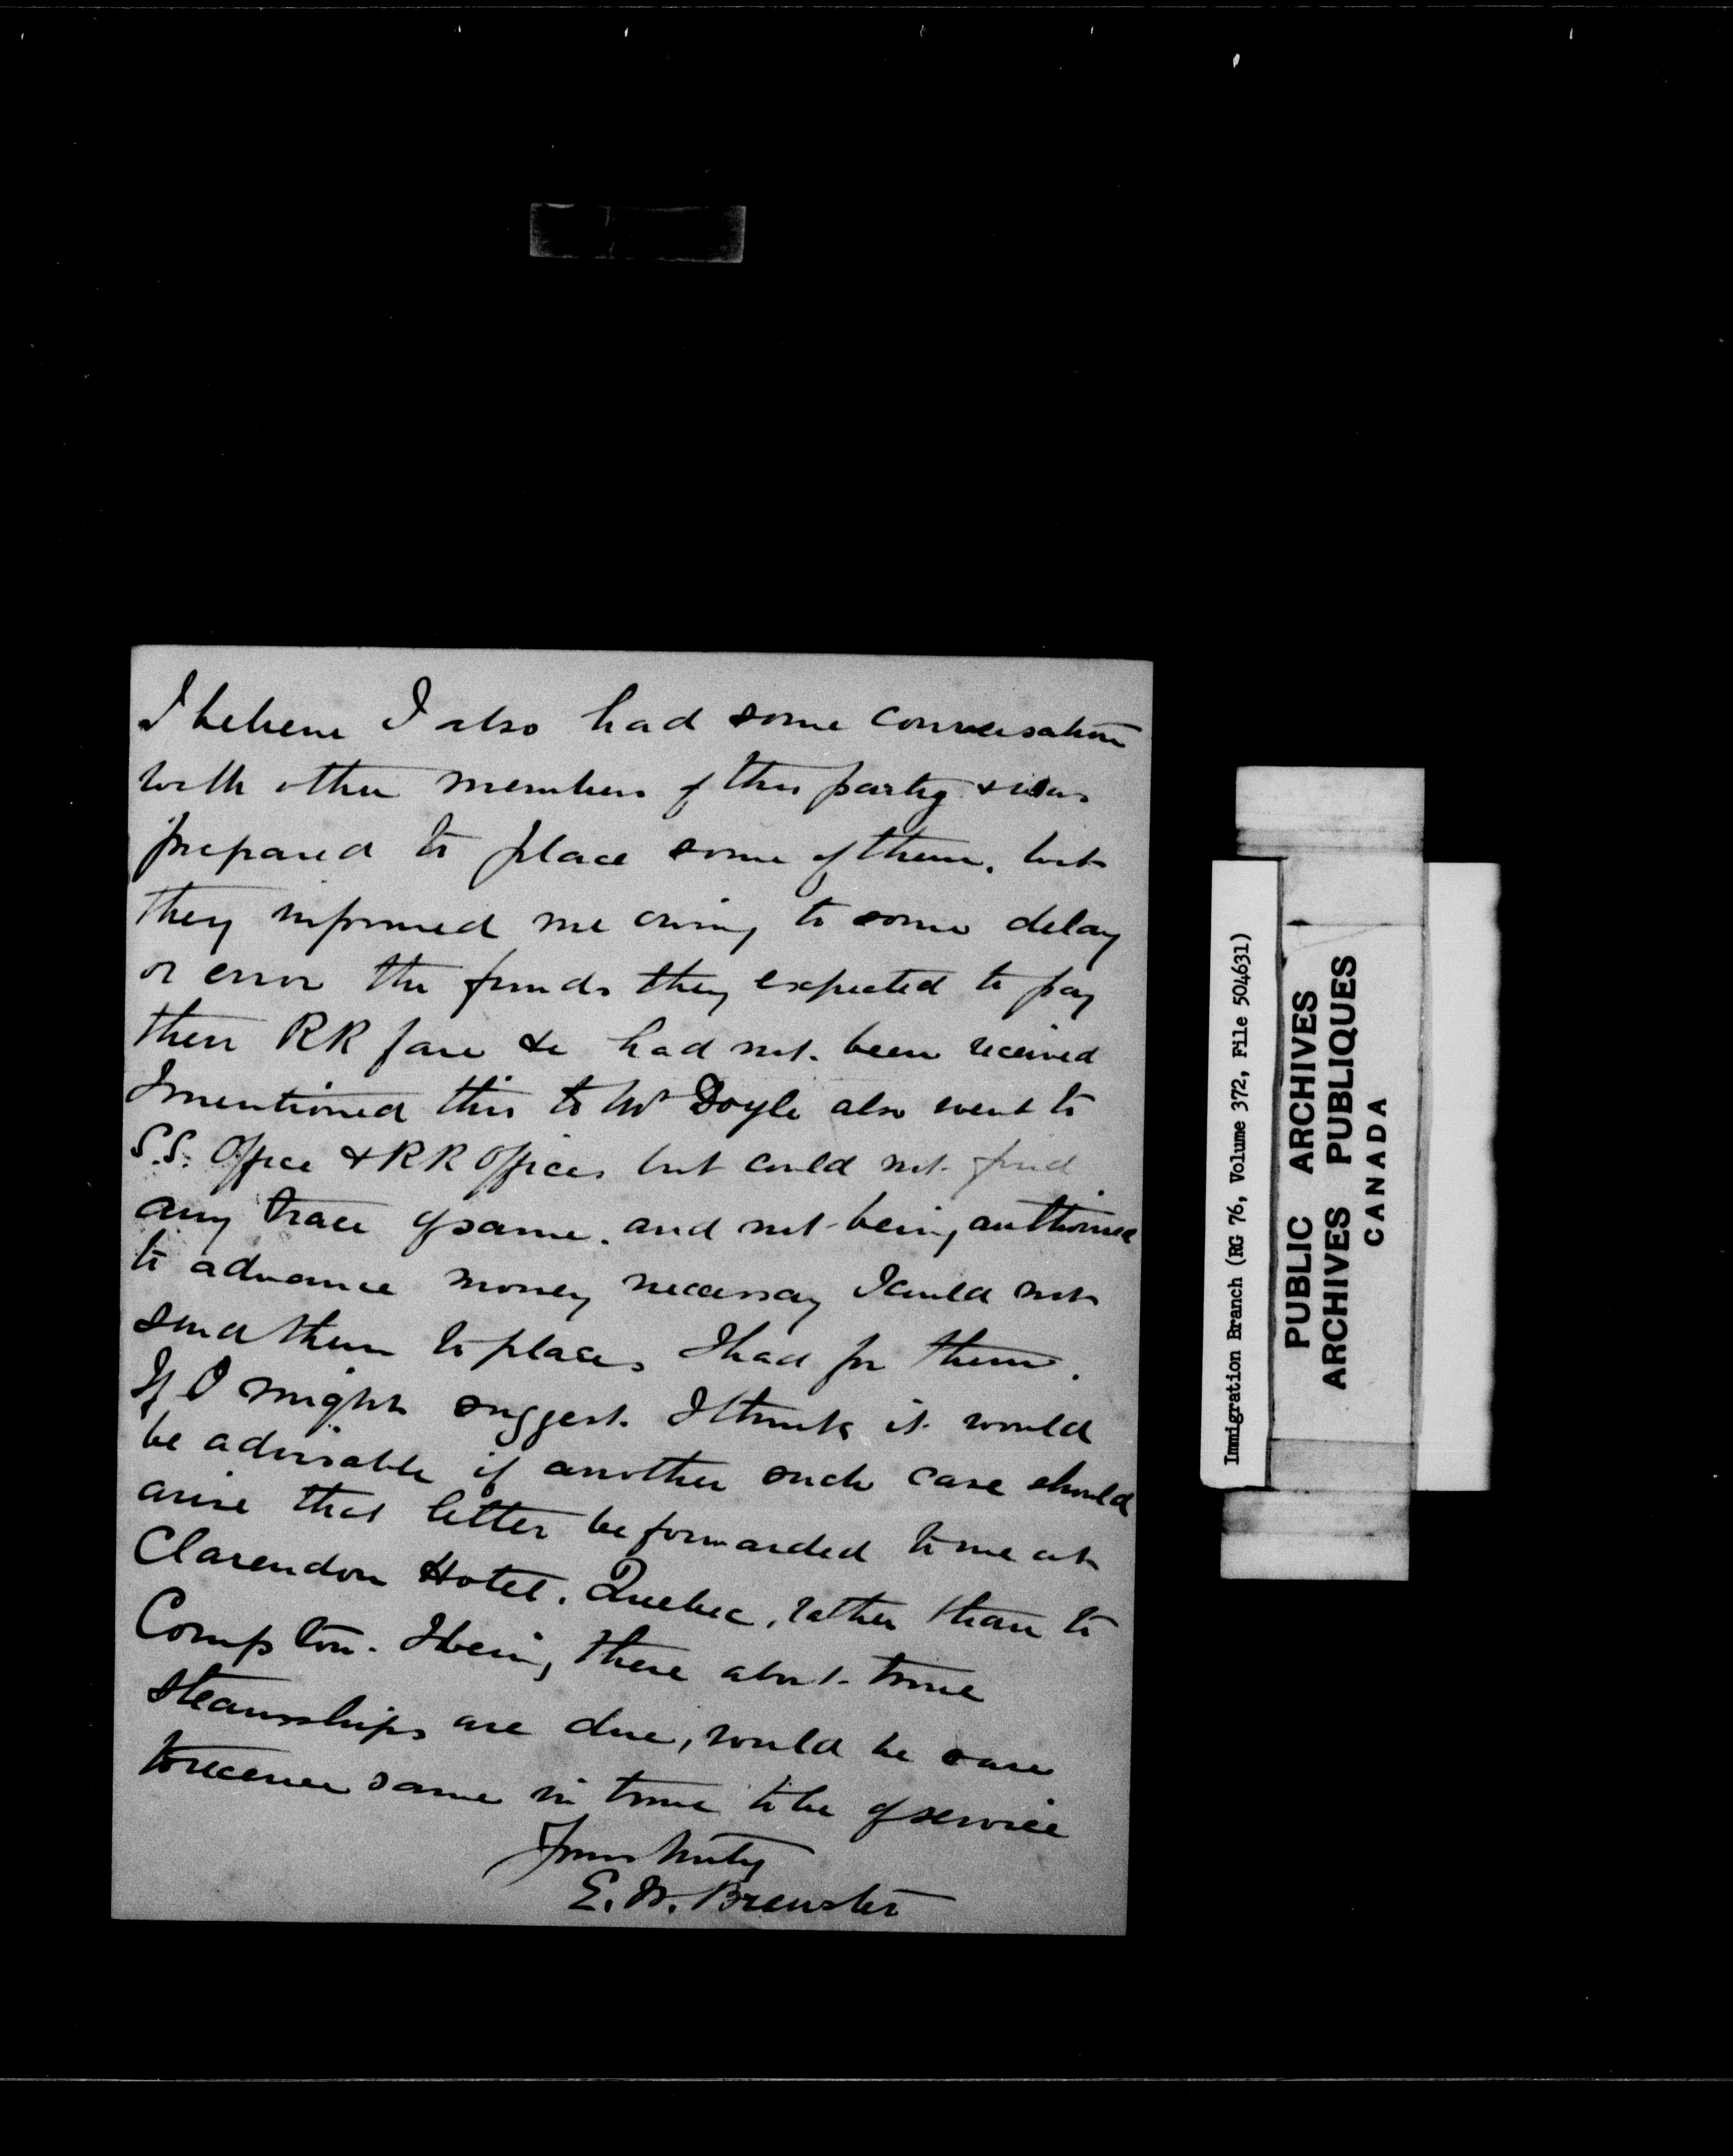 I believe I also had some conversation
with other members of this party & was
prepared to place some of them. but
they informed me owing to some delay
or error the funds they expected to pay
their RR fare &c had not been received
I mentioned this to Mr Doyle also went to
S.S. Office & RR Offices but could not find
any trace of same. and not being authorized
to advance money necessary I could not
send them to places I had for them.
If I might suggest. I think it would
be advisable if another such case should
arise that letter be forwarded to me at
Clarendon Hotel. Quebec, rather than to
Compton. I being there about time
steamships are due, would be sure
to receive same in time to be of service
Yours truly
E. W. Brewster
Immigration Branch (RG 76, Volume 372, File 504631)
PUBLIC ARCHIVES
ARCHIVES PUBLIQUES
CANADA